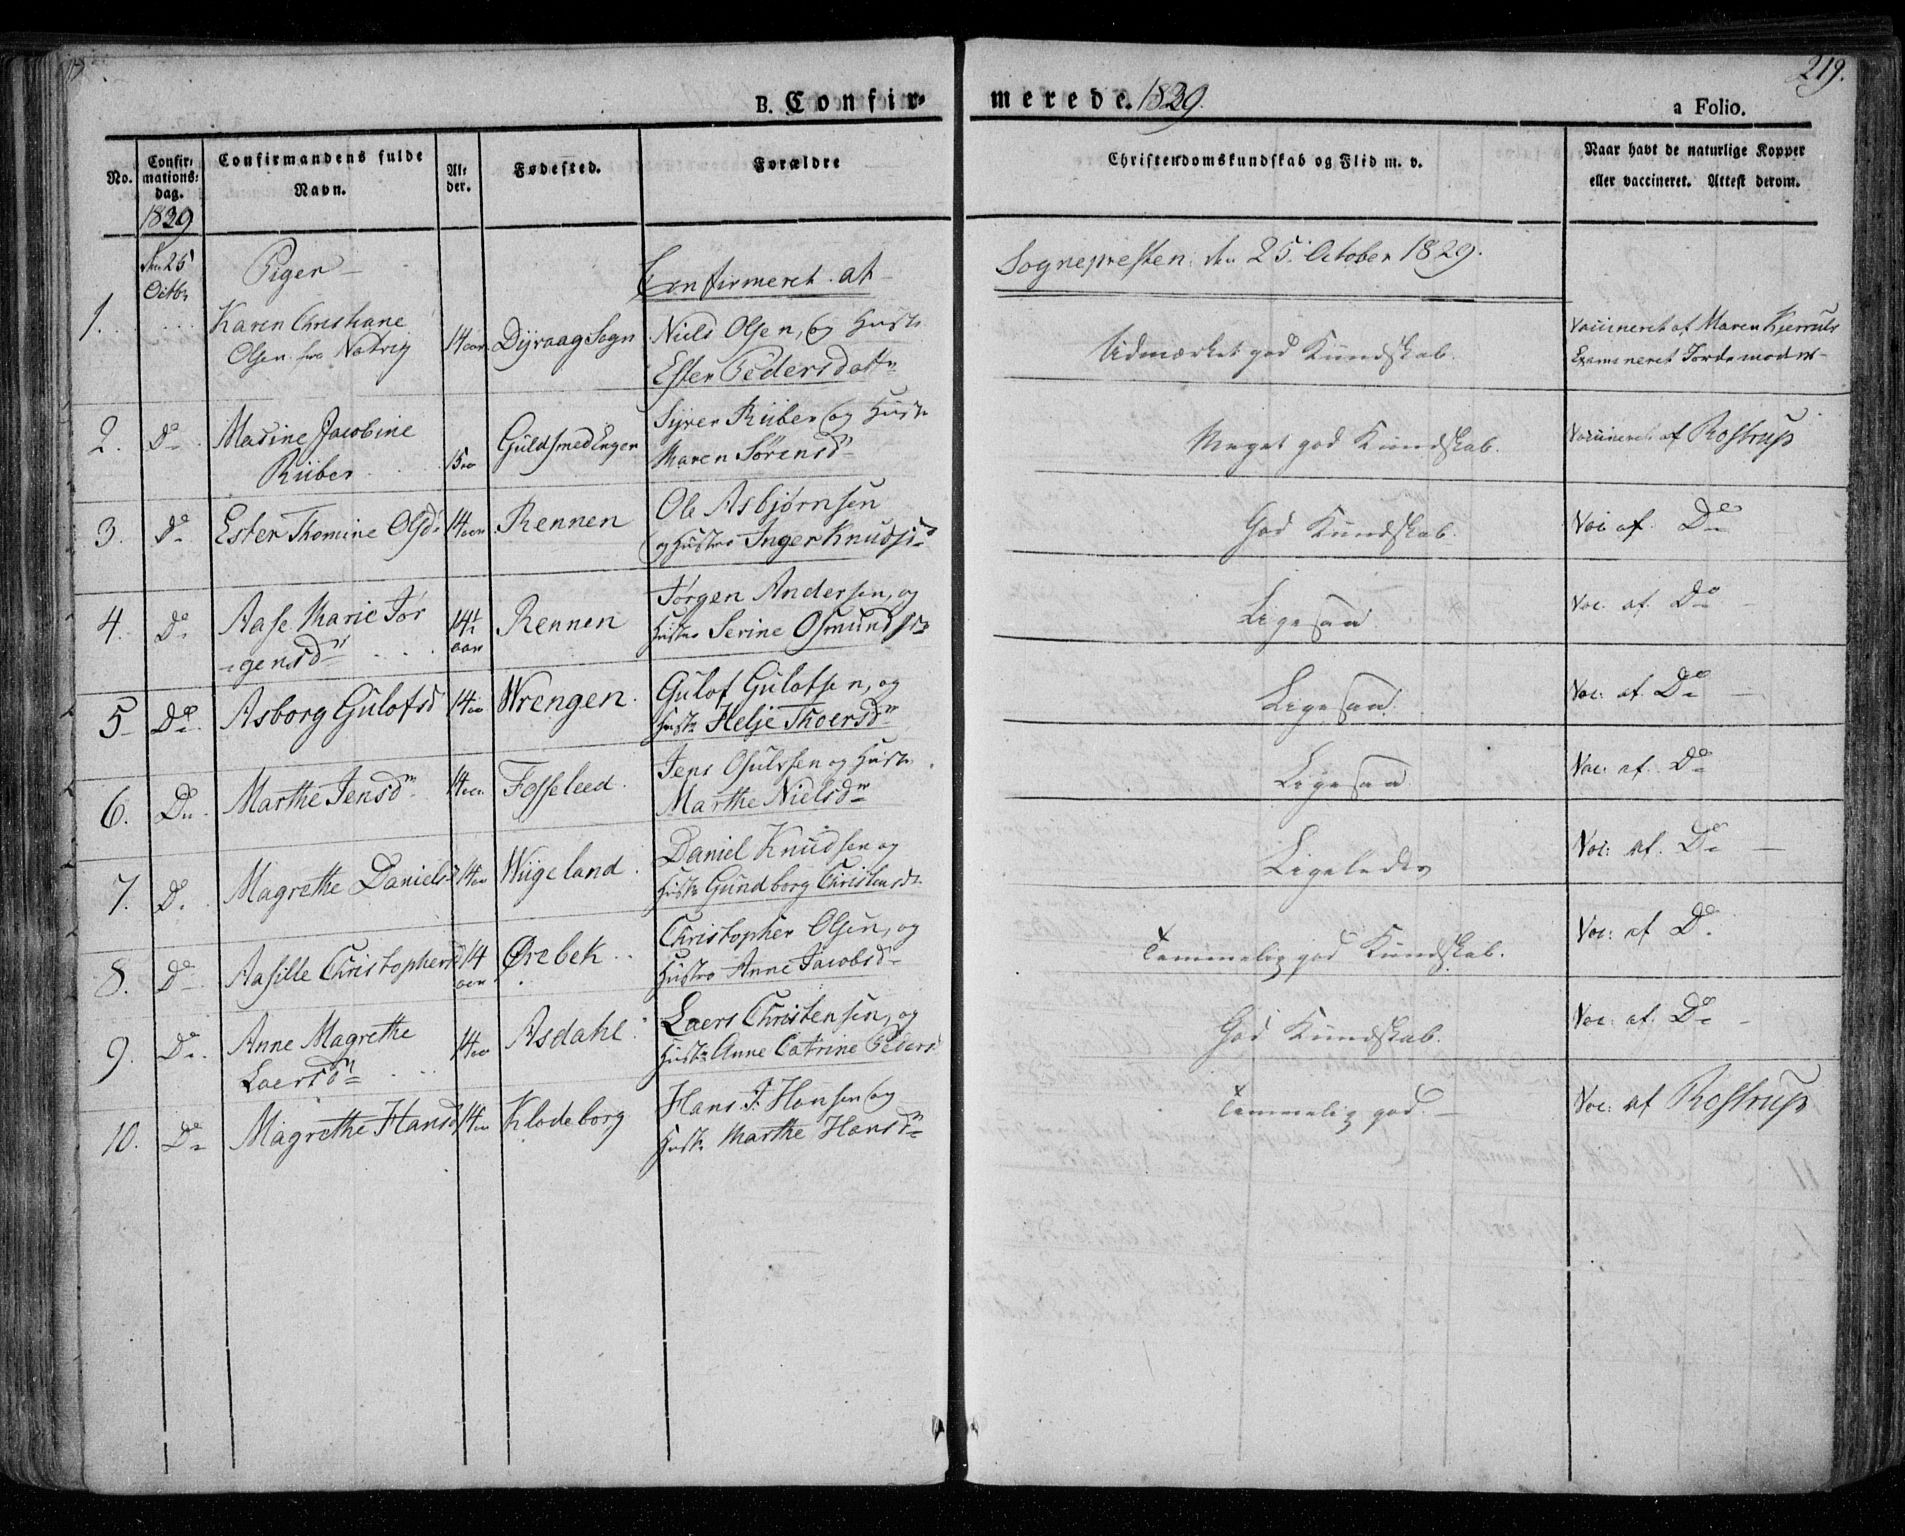 B. Confirmerede. 1829.
219.
a Folio.
No.
Confirmationsdag.
Confirmandens fulde Navn.
Alder.
Fødested.
Forældre
Christendomskundskab og Flid m. v.
Naar havt de naturlige Kopper
eller vaccineret. Attest derom.
1829
den 25 Octbr
Piger
Confirmeret af Sognepresten den 25 October 1829.
1.
Karen Christiane
Olsen fra Natvig
14 aar
Dyvaag Sogn
Niels Olsen, og Hustr
Ester Pedersdattr
Udmærket god Kundskab.
Vaccineret af Maren Kjerrulv
Examineret Jordemoder
2. Do
Masine Jacobine
Riiber
15 aar
Guldsmedengen
Syver Riiber og Hustr
Maren Sørensdr
Meget god Kundskab.
Vaccineret af Rostrup
3. Do Ester Thomine Olsdr 14 aar Rennen
Ole Asbjørnsen
og Hustro Inger Knudsd
God Kundskab.
Vac af. Do
4. Do
Aase Marie Jør
gensdr
14½ aar
Rennen
Jørgen Andersen, og
Hustro Serine Osmundsdr
Ligesaa.
Vac. af. Do
5 Do. Asborg Gulofsd 14 aar Wrengen.
Gulof Gulofsen, og
Hustr Helje Thoersdr
Ligesaa.
Vac: af. Do
6. Do. Marthe Jensdr 14 aar Fosseleed.
Jens Osulfsen og Hustr
Marthe Nielsdr
Ligesaa
Vac: af. Do
7. Do. Magrethe Daniels 14 aar Wiigeland.
Daniel Knudsen og
Hustr Gundborg Christensd.
Ligeledes
Vac: af. Do
8. Do Aasille Christophersd 14 aar Ørebek
Christopher Olsen, og
Hustro Anne Jacobsdr
Temmelig god Kundskab.
Vac: af Do.
9. Do.
Anne Magrethe
Laersdr
14 aar
Asdahl
Laers Christensen, og
Hustr Anne Catrine Peders
God Kundskab.
Vac: af. Do
10. Do Magrethe Hansd 14 aar Klodeborg
Hans J. Hansen og
Hustr Marthe Hansdr
Temmelig god.
Vac: af Rostrup